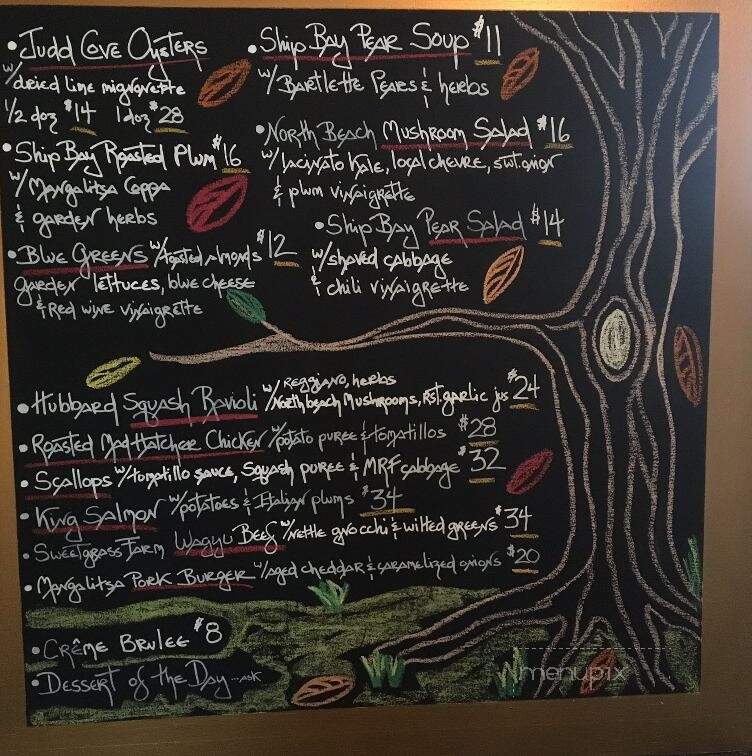 • Judd Cove Oysters
w/dried lime mignonette
1/2 doz $14 1 doz $28
• Ship Bay Roasted Plum $16
w/Mangalitsa Coppa
& garden herbs
• Blue Greens w/toasted Almonds $12
garden lettuces, blue cheese
& Red wine vinaigrette
• Ship Bay Pear Soup $11
w/Bartlette Pears & herbs
• North Beach Mushroom Salad $16
w/lacinato kale, local chevre, swt. onion
& plum vinaigrette
• Ship Bay Pear Salad $14
w/shaved cabbage
& chili vinaigrette
• Hubbard Squash Ravioli w/ reggiano, herbs
North beach Mushrooms, Rst. garlic jus $24
• Roasted Mad Hatcher Chicken w/potato puree & tomatillos $28
• Scallops w/tomatillo sauce, Squash puree & MRF cabbage $32
• King Salmon w/potatoes & Italian plums $34
• Sweetgrass Farm Wagyu Beef w/nettle gnocchi & wilted greens $34
• Mangalitsa Pork Burger w/aged cheddar & caramelized onions $20
• Crême Brulee $8
• Dessert of the Day ...ask
menupix